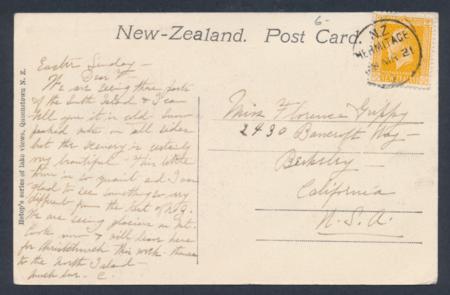 New-Zealand. Post Card.
6-
N.Z.
HERMITAGE
21
Easter Sunday -
Dear F -
We are seeing this part
of the South Island & I can
tell you it is cold. Snow
peaked mts. on all sides
but the scenery is certainly
very beautiful. This little
town is so quaint and I am
glad to see something so very
different from the rest of N.Z.
We are seeing glaciers on Mt.
Cook now & will leave here
for Christchurch this week - thence
to the North Island -
much love - C.
Miss Florence Grippy
2430 Bancroft Way -
Berkeley -
California
U.S.A.
Hetop's series of lake views, Queenstown N. Z.